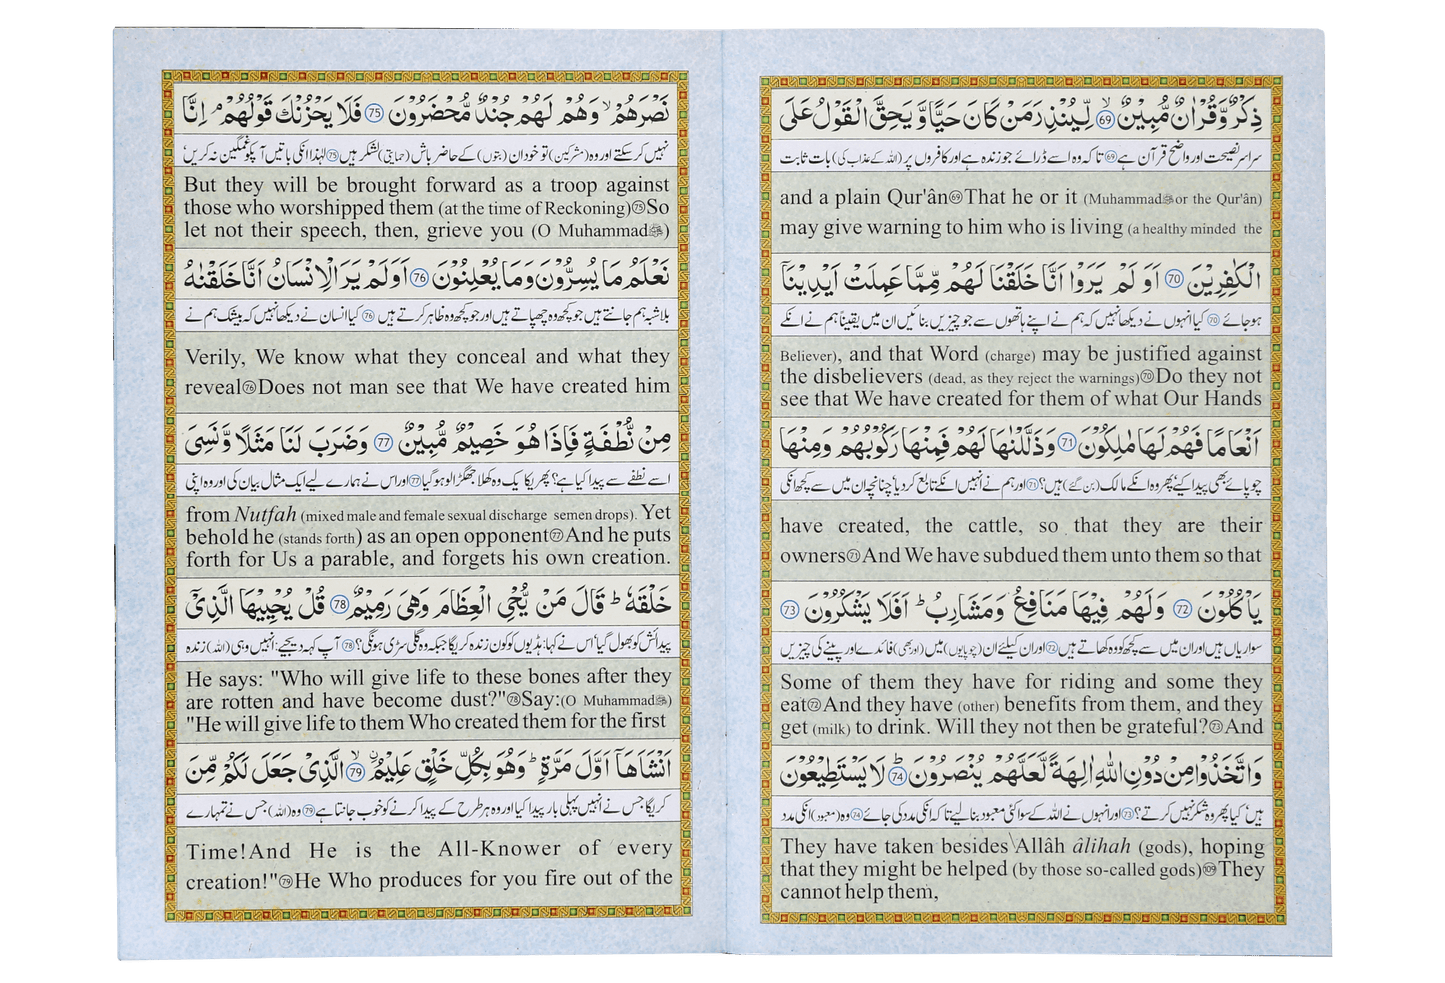 ذِكْرٌ وَّقُرْاٰنٌ مُّبِيْنٌ ۙ 69 لِّيُنْذِرَ مَنْ كَانَ حَيًّا وَّ يَحِقَّ الْقَوْلُ عَلَى
سراسر نصیحت اور واضح قرآن ہے 69 تاکہ وہ اسے ڈرائے جو زندہ ہے اور کافروں پر (اللہ کے عذاب کی) بات ثابت
and a plain Qur'ân 69 That he or it (Muhammad ﷺ or the Qur'ân)
may give warning to him who is living (a healthy minded the
الْكٰفِرِيْنَ 70 اَوَ لَمْ يَرَوْا اَنَّا خَلَقْنَا لَهُمْ مِّمَّا عَمِلَتْ اَيْدِيْنَاۤ
ہو جائے 70 کیا انہوں نے دیکھا نہیں کہ ہم نے اپنے ہاتھوں سے جو چیزیں بنائیں ان میں یقیناً ہم نے انکے
Believer), and that Word (charge) may be justified against
the disbelievers (dead, as they reject the warnings) 70 Do they not
see that We have created for them of what Our Hands
اَنْعَامًا فَهُمْ لَهَا مٰلِكُوْنَ 71 وَذَلَّلْنٰهَا لَهُمْ فَمِنْهَا رَكُوْبُهُمْ وَمِنْهَا
چوپائے بھی پیدا کیے؟ پھر وہ انکے مالک (بن گئے) ہیں؟ 71 اور ہم نے انہیں انکے تابع کر دیا' چنانچہ ان میں سے کچھ انکی
have created, the cattle, so that they are their
owners 71 And We have subdued them unto them so that
يَاْكُلُوْنَ 72 وَلَهُمْ فِيْهَا مَنَافِعُ وَمَشَارِبُ ؕ اَفَلَا يَشْكُرُوْنَ 73
سواریاں ہیں اور ان میں سے کچھ کو وہ کھاتے ہیں 72 اور ان کیلئے ان (چوپایوں) میں (اور بھی) فائدے اور پینے کی چیزیں
Some of them they have for riding and some they
eat 72 And they have (other) benefits from them, and they
get (milk) to drink. Will they not then be grateful? 73 And
وَاتَّخَذُوْا مِنْ دُوْنِ اللّٰهِ اٰلِهَةً لَّعَلَّهُمْ يُنْصَرُوْنَ ؕ 74 لَا يَسْتَطِيْعُوْنَ
ہیں' کیا پھر وہ شکر نہیں کرتے؟ 73 اور انہوں نے اللہ کے سوا کئی معبود بنا لیے تاکہ انکی مدد کی جائے 74 وہ (معبود) انکی مدد
They have taken besides Allâh âlihah (gods), hoping
that they might be helped (by those so-called gods) 109 They
cannot help them,
نَصْرَهُمْ ۙ وَهُمْ لَهُمْ جُنْدٌ مُّحْضَرُوْنَ 75 فَلَا يَحْزُنْكَ قَوْلُهُمْ ۘ اِنَّا
نہیں کر سکتے اور وہ (مشرکین) تو خود ان (بتوں) کے حاضر باش (حمایتی) لشکر ہیں 75 لہٰذا انکی باتیں آپکو غمگین نہ کریں'
But they will be brought forward as a troop against
those who worshipped them (at the time of Reckoning) 75 So
let not their speech, then, grieve you (O Muhammad ﷺ)
نَعْلَمُ مَا يُسِرُّوْنَ وَمَا يُعْلِنُوْنَ 76 اَوَلَمْ يَرَ الْاِنْسَانُ اَنَّا خَلَقْنٰهُ
بلاشبہ ہم جانتے ہیں جو کچھ وہ چھپاتے ہیں اور جو کچھ وہ ظاہر کرتے ہیں 76 کیا انسان نے دیکھا نہیں کہ بیشک ہم نے
Verily, We know what they conceal and what they
reveal 76 Does not man see that We have created him
مِنْ نُّطْفَةٍ فَاِذَا هُوَ خَصِيْمٌ مُّبِيْنٌ 77 وَضَرَبَ لَنَا مَثَلًا وَّنَسِيَ
اسے نطفے سے پیدا کیا ہے؟ پھر یکایک وہ کھلا جھگڑالو ہو گیا 77 اور اس نے ہمارے لیے ایک مثال بیان کی اور وہ اپنی
from Nutfah (mixed male and female sexual discharge semen drops). Yet
behold he (stands forth) as an open opponent 77 And he puts
forth for Us a parable, and forgets his own creation.
خَلْقَهٗ ؕ قَالَ مَنْ يُّحْيِ الْعِظَامَ وَهِيَ رَمِيْمٌ 78 قُلْ يُحْيِيْهَا الَّذِيْۤ
پیدائش کو بھول گیا' اس نے کہا: ہڈیوں کو کون زندہ کریگا جبکہ وہ گلی سڑی ہونگی؟ 78 آپ کہہ دیجیے: انہیں وہی (اللہ) زندہ
He says: "Who will give life to these bones after they
are rotten and have become dust?" 78 Say:(O Muhammad ﷺ)
"He will give life to them Who created them for the first
اَنْشَاَهَاۤ اَوَّلَ مَرَّةٍ ؕ وَهُوَ بِكُلِّ خَلْقٍ عَلِيْمٌ ۙ 79 الَّذِيْ جَعَلَ لَكُمْ مِّنَ
کریگا جس نے انہیں پہلی بار پیدا کیا اور وہ ہر طرح کے پیدا کرنے کو خوب جانتا ہے 79 وہ (اللہ) جس نے تمہارے
Time!And He is the All-Knower of every
creation!" 79 He Who produces for you fire out of the